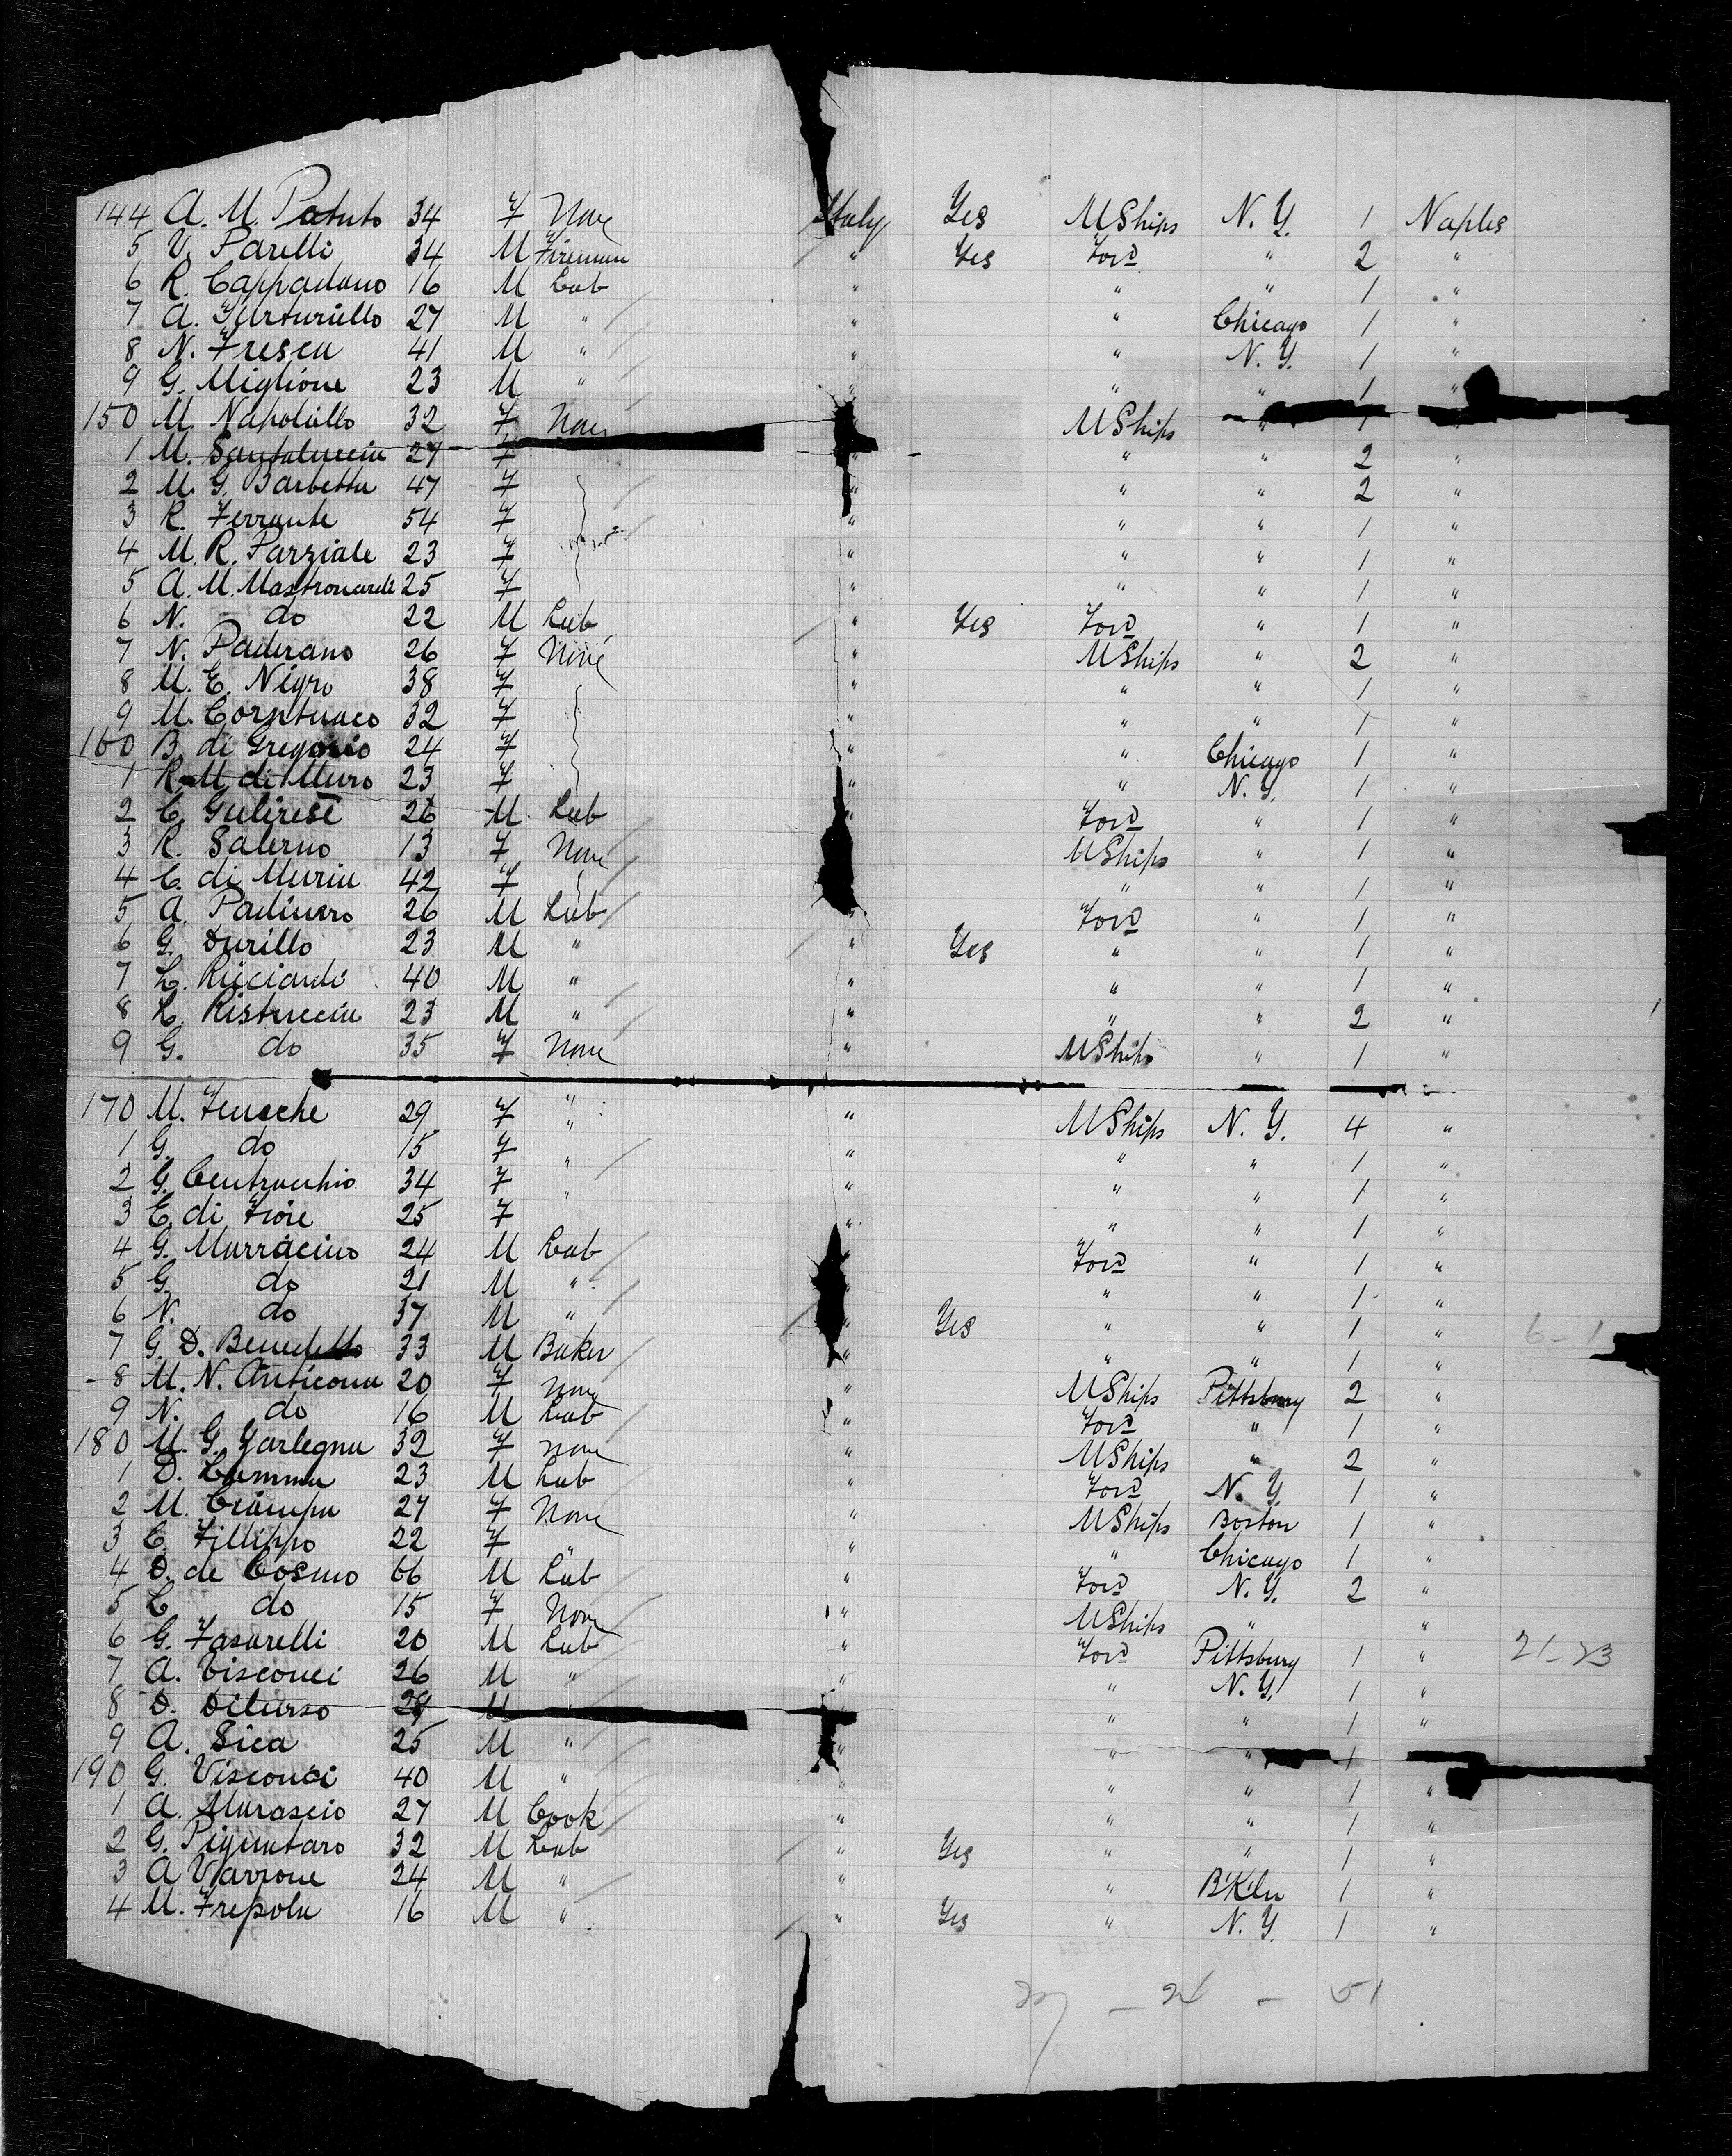 144 A. M. Potuto 34 F None Italy Yes MShips N. Y. 1 Naples
5 V. Parelli 34 M Fireman " Yes Ford " 2 "
6 R. Cappadano 16 M Lab " " " 1 "
7 A. 27 M " " " Chicago 1 "
8 N. Fresca 41 M " " " N. Y. 1 "
9 G. Miglione 23 M " " " " 1 "
150 M. Napoliello 32 F None MShips " 1
1 M. Santaluccia 27 F " " " 2 "
2 M. G. Barbetta 47 F " " " 2 "
3 R. Ferrante 54 F " " " 1 "
4 M. R. Parziale 23 F " " " 1 "
5 A. M. Mastronardi 25 F " " " 1 "
6 N. do 22 M Lab " Yes Ford " 1 "
7 N. Paderano 26 F None " MShips " 2 "
8 M. E. Nigro 38 F " " " 1 "
9 M. 32 F " " " 1 "
160 B. di Gregorio 24 F " " Chicago 1 "
1 R. M. di Muro 23 F " " N. Y. 1 "
2 C. 26 M Lab Ford " 1 "
3 R. Salerno 13 F None MShips " 1 "
4 C. di Muria 42 F " " 1 "
5 A. 26 M Lab Ford " 1 "
6 G. Durillo 23 M " " Yes " " 1 "
7 L. Ricciardi 40 M " " " " 1 "
8 L. Ristuccia 23 M " " " " 2 "
9 G. do 35 F None " MShips " 1 "
170 M. 29 F " " MShips N. Y. 4 "
1 G. do 15 F " " " " 1 "
2 G. Centracchio 34 F " " " " 1 "
3 E. di Fiore 25 F " " " " 1 "
4 G. Marracino 24 M Lab " Ford " 1 "
5 G. do 21 M " " " " 1 "
6 N. do 37 M " " Yes " " 1 " 6-1
7 G. D. Benedetto 33 M Baker " " " 1 "
8 M. N. Anticona 20 F None " MShips Pittsburg 2 "
9 N. do 16 M Lab " Ford " 1 "
180 M. G. 32 F None " MShips " 2 "
1 D. Lamma 23 M Lab " Ford N. Y. 1 "
2 M. Ciampa 27 F None " MShips Boston 1 "
3 C. Fillippo 22 F " " " Chicago 1 "
4 D. de Cosmo 66 M Lab " Ford N. Y. 2 "
5 L do 15 F None " MShips " "
6 G. Fasarelli 20 M Lab " Ford Pittsburg 1 " 21-23
7 A. Visconci 26 M " " " N. Y. 1 "
8 D. Dilurso 28 M " " " " 1 "
9 A. Sica 25 M " " " " 1
190 G. Visconci 40 M " " " " 1 "
1 A. Murascio 27 M Cook " " " 1 "
2 G. Piguntaro 32 M Lab " Yes " " 1 "
3 A Varrone 24 M " " " B'Kln 1 "
4 M. Frepola 16 M " " Yes " N. Y. 1 "
27 - 24 - 51